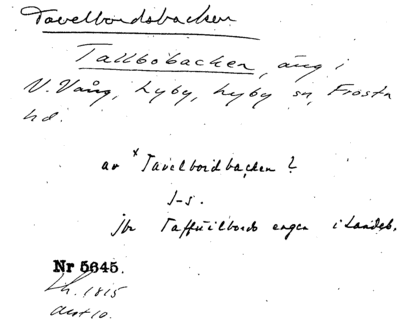 Tavelbordsbacken
Tallbobacken, äng i
V. Vång, Lyby, Lyby sn, Frosta
hd.
av *Tavelbordbacken?
J-s.
jfr Taffuilbords engen i Landeb.
Nr 5645.
Lh. 1815
akt 10.